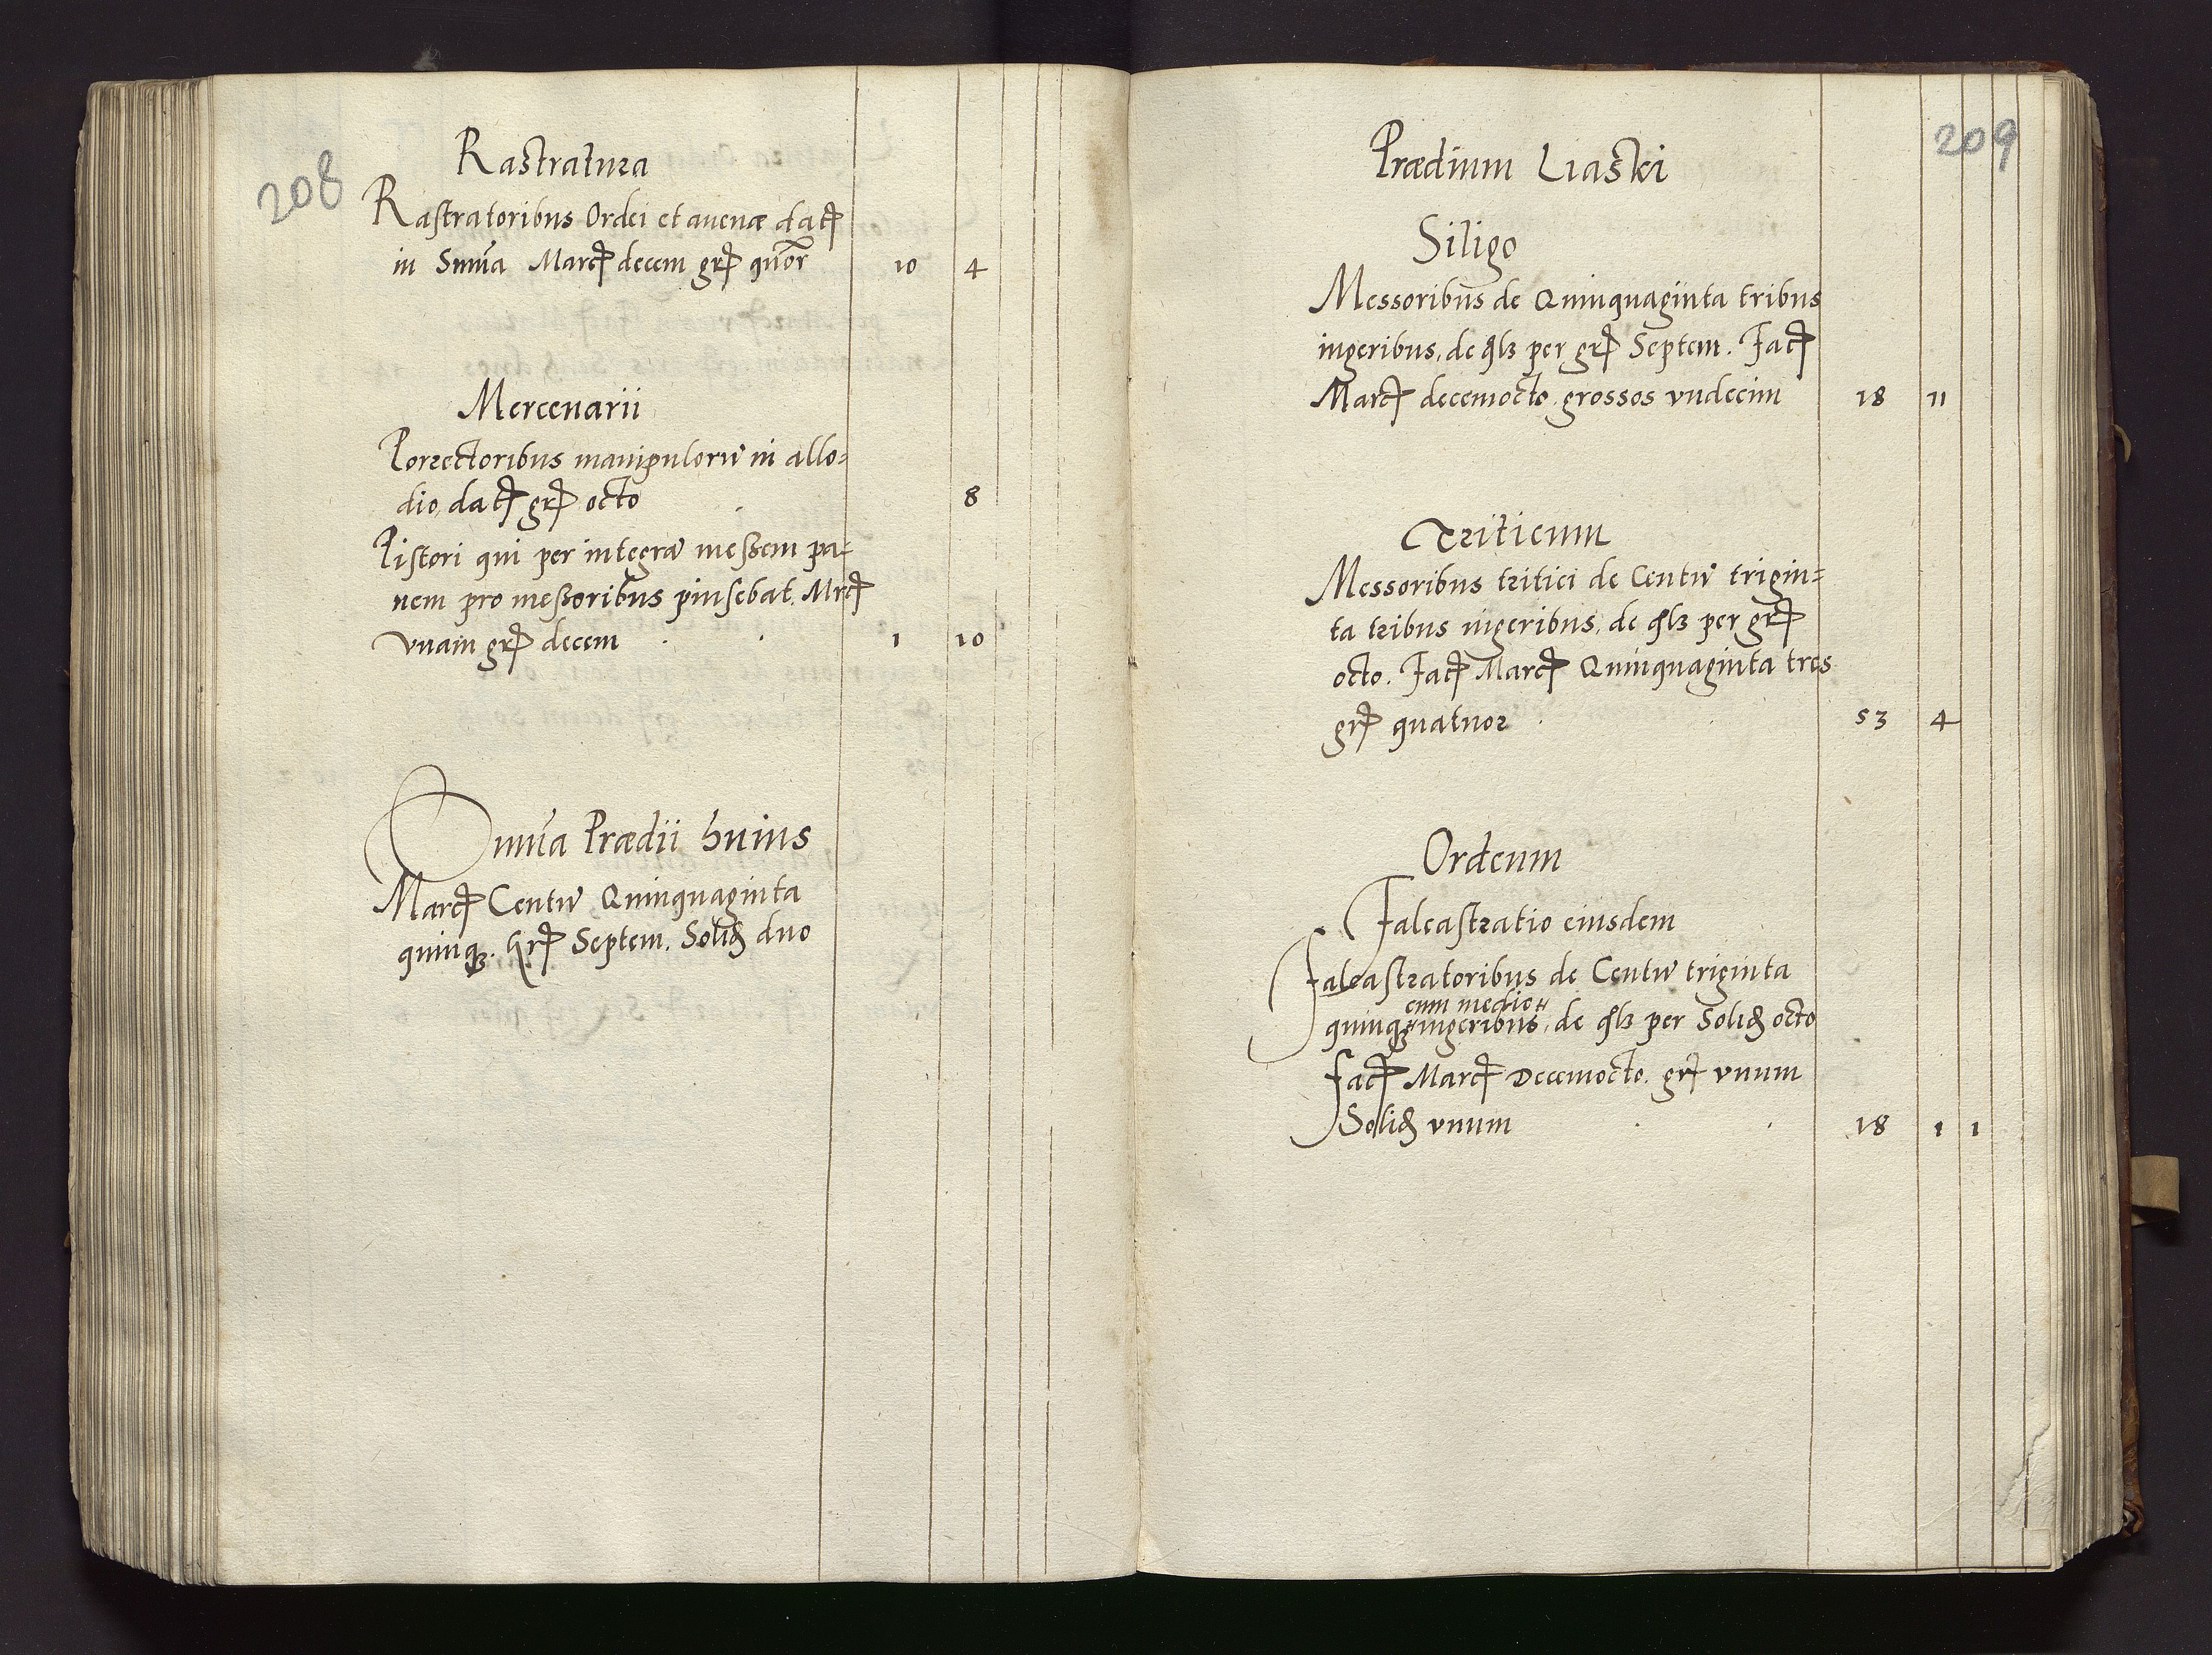 208
Rastratura
Rastratoribus Ordei et auenæ datꝭ
in Sum̃a Marcꝭ decem grꝭ quõr 10 4
Mercenarii
Porrectoribus manipulorũ in allo=
dio, datꝭ grꝭ octo 8
Pistori qui per integrã meßem pa=
nem pro meßoribus pinsebat. Mrcꝭ
vnam grꝭ decem 1 10
Sum̃a Prædii huius
Marcꝭ Centũ Quinquaginta
quinqꝫ. Grꝭ Septem. Solidꝭ duo
209
Prædium Liaski
Siligo
Messoribus de Quinquaginta tribus
iugeribus, de qlꝫ per grꝭ Septem. Facꝭ
Marcꝭ decemocto grossos vndecim 18 11
Triticum
Messoribus tritici de Centũ trigin=
ta tribus iugeribus, de qlꝫ per grꝭ
octo. Facꝭ Marcꝭ Quinquaginta tres
grꝭ quatuor 53 4
Ordeum
Falcastratio eiusdem
Falcastratoribus de Centũ triginta
cum medio
quinqꝫ iugeribus, de qlꝫ per Solidꝭ octo
facꝭ Marcꝭ Decemocto. grꝭ vnum
Solidꝭ vnum 18 1 1